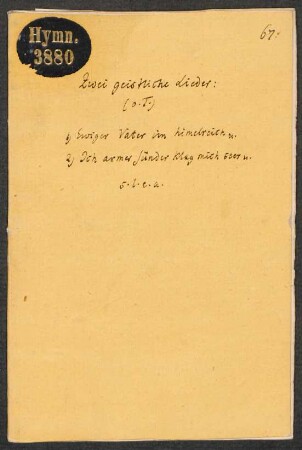 Hymn.
3880
67.
Zwei geistliche Lieder:
(o. T.)
1) Ewiger Vater im himelreich u.
2) Ich armer sünder klag mich seer u.
s. l. e. a.